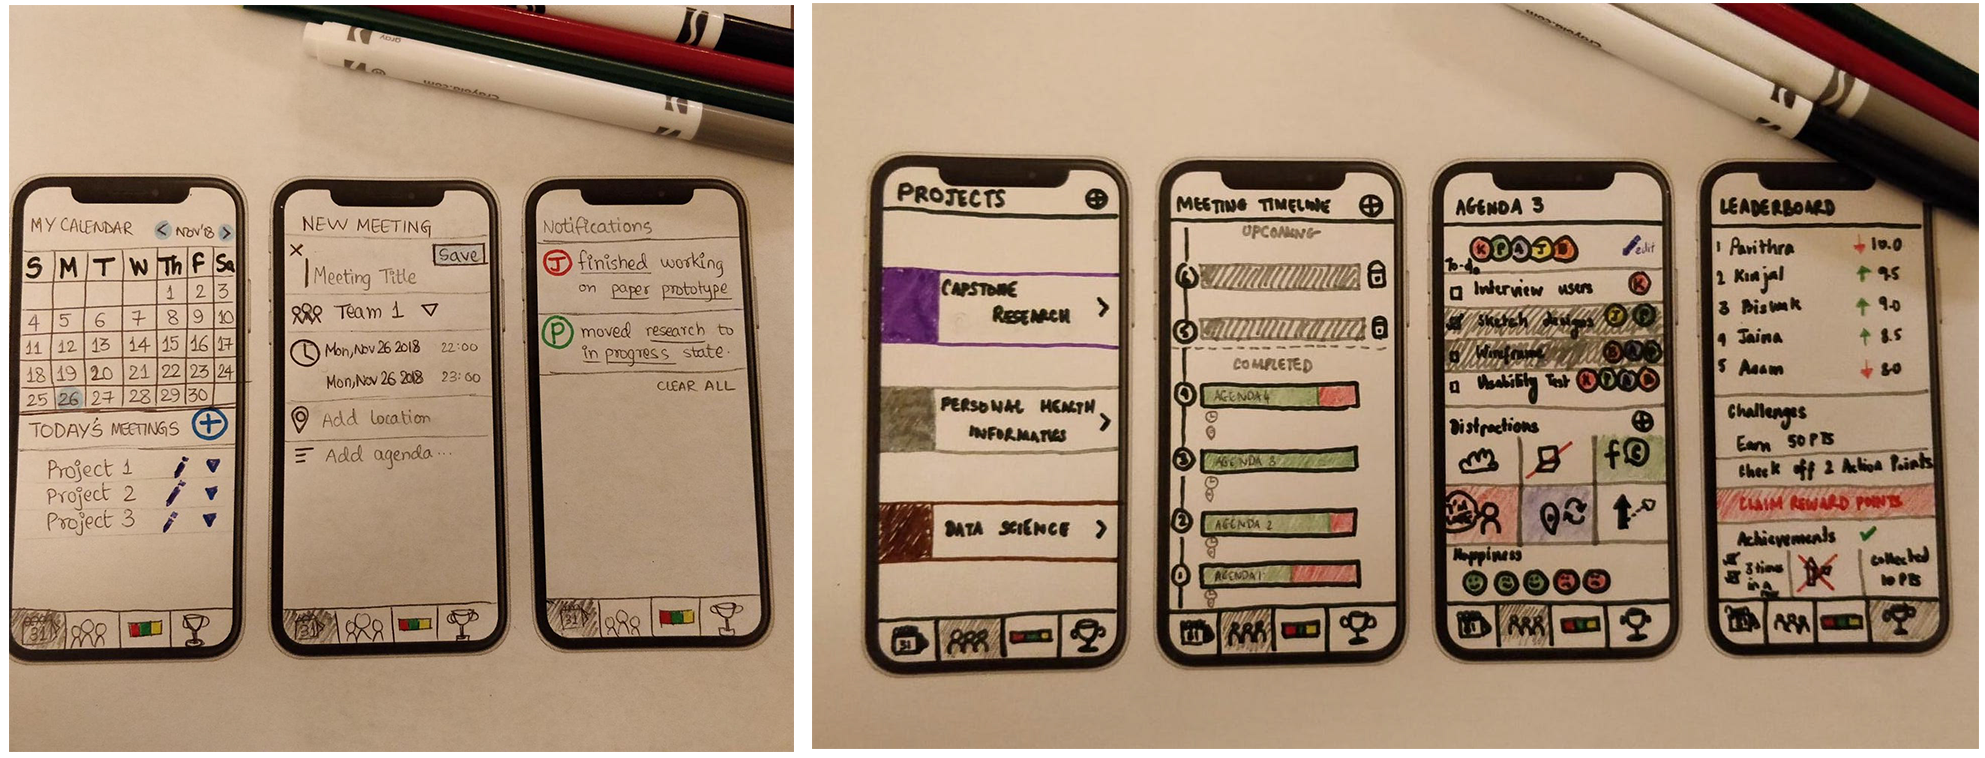 gray
Crayola.com
MY CALENDAR < NOV'18 >
S M T W Th F Sa
1 2 3
4 5 6 7 8 9 10
11 12 13 14 15 16 17
18 19 20 21 22 23 24
25 26 27 28 29 30
TODAY'S MEETINGS +
Project 1
Project 2
Project 3
31
NEW MEETING
×
Save
Meeting Title
Team 1
Mon, Nov 26 2018 22:00
Mon, Nov 26 2018 23:00
Add location
Add agenda...
31
Notifications
J finished working
on paper prototype
P moved research to
in progress state.
CLEAR ALL
31
Crayola.com
PROJECTS +
CAPSTONE
RESEARCH >
PERSONAL HEALTH
INFORMATICS >
DATA SCIENCE >
31
MEETING TIMELINE +
UPCOMING
6
5
COMPLETED
4 AGENDA 4
3 AGENDA 3
2 AGENDA 2
1 AGENDA 1
31
AGENDA 3
K P A J B
edit
To-do
Interview users K
Sketch designs J P
Wireframe B A P
Usability Test K P A B
Distractions +
f
Happiness
31
LEADERBOARD
1 Parithra 10.0
2 Kinjal 9.5
3 Biswak 9.0
4 Jaina 8.5
5 Anam 8.0
Challenges
Earn 50 PTS
Check off 2 Action Points
CLAIM REWARD POINTS
Achievements
3 times
in a
collected
10 PTS